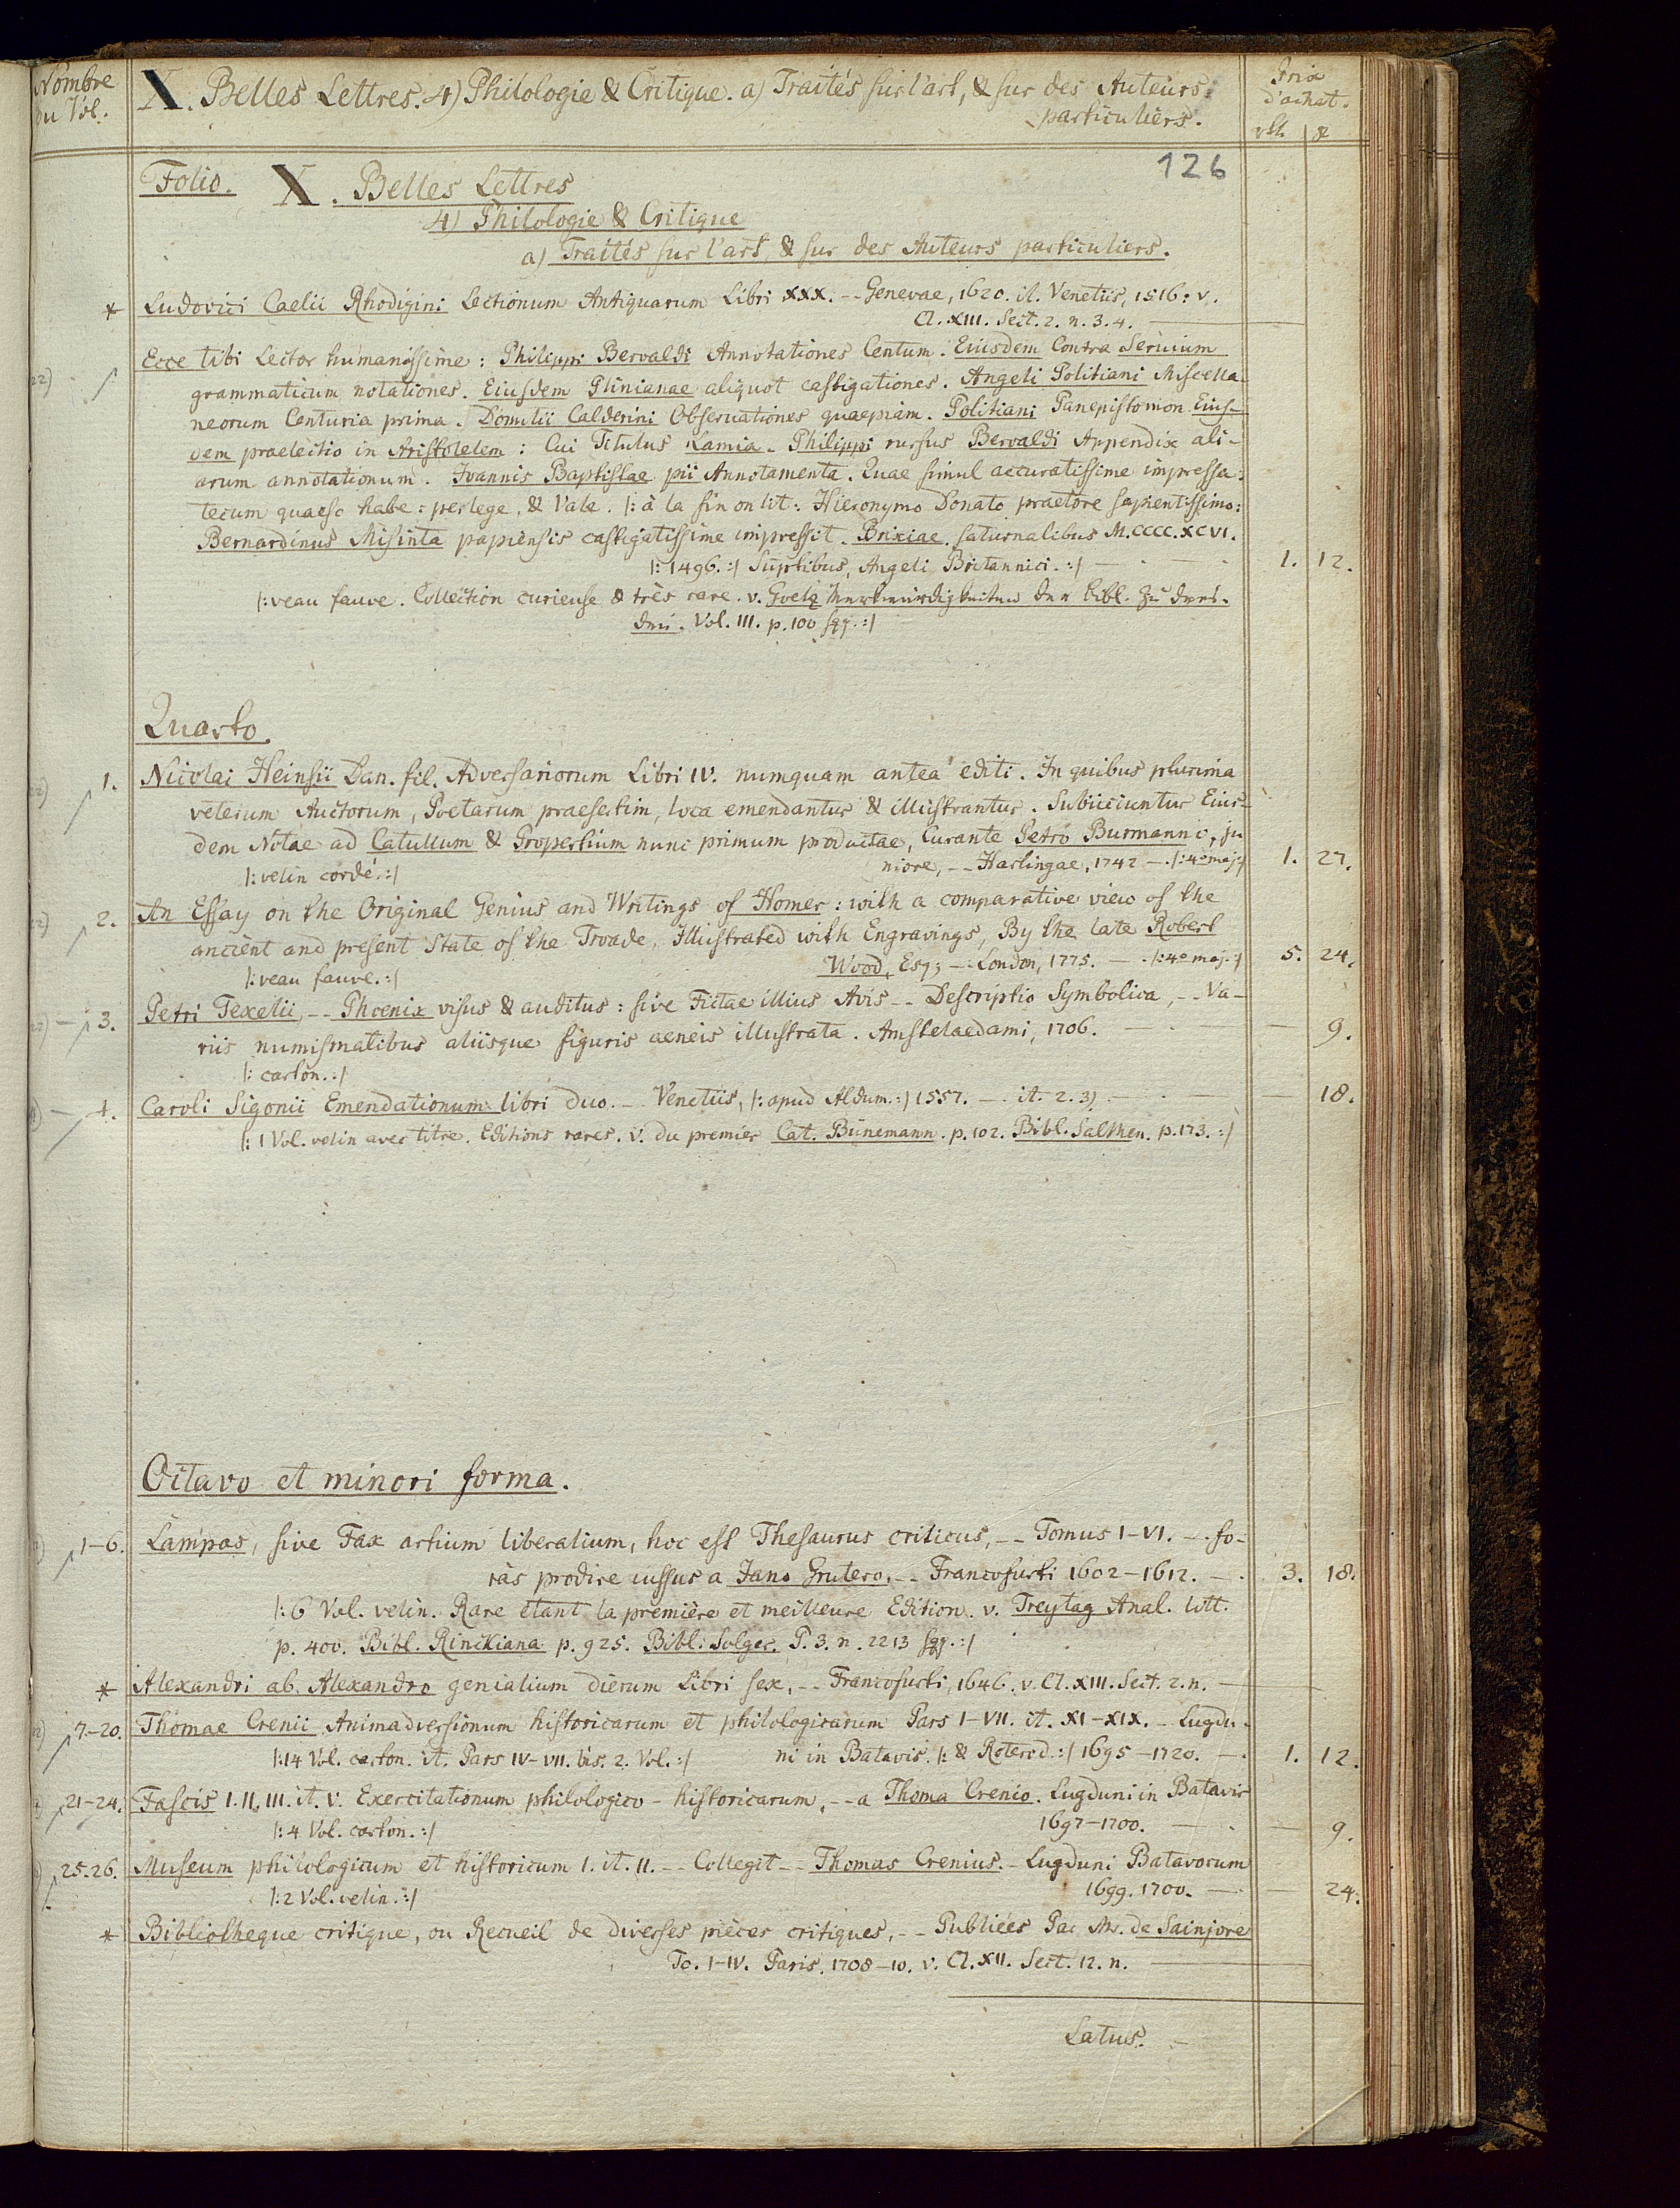 Nombre
du Vol.
X. Belles Lettres. 4) Philologie & Critique. a) Traités sur l'art, & sur des Auteurs
particuliers.
Prix
d'achat.
rth.
126
Folio. X. Belles Lettres
4) Philologie & Critique
a) Traités sur l'art, & sur des Auteurs particuliers.
* Ludovici Caelii Rhodigini Lectionum Antiquarum Libri XXX. -- Genevae, 1620. it. Venetiis, 1516: v.
Cl. XIII. Sect. 2. n. 3. 4. —
Ecce tibi Lector humanissime: Philippi Beroaldi Annotationes Centum. Eiusdem Contra Seruium
grammaticum notationes. Eiusdem Plinianae aliquot castigationes. Angeli Politiani Miscella-
neorum Centuria prima. Domitii Calderini Obseruationes quaepiam. Politiani Panepistomon. Eius-
dem praelectio in Aristotelem: Cui Titulus Lamia. Philippi rursus Beroaldi Appendix ali-
arum annotationum. Ioannis Baptistae pii Annotamenta. Quae simul accuratissime impressa:
tecum quaeso habe: perlege, & Vale. |: à la fin on lit: Hieronymo Donato praetore sapientissimo:
Bernardinus Misinta papiensis castigatissime impressit. Brixiae. saturnalibus M.CCCC.XCVI.
|: 1496. :| Sumptibus, Angeli Britannici. :| — 1. 12.
|: veau fauve. Collection curieuse & très rare. v. Goetz Merkwürdigkeiten der Bibl. zu Dres-
den. Vol. III. p. 100 sqq. :|
Quarto.
1. Nicolai Heinsii Dan. fil. Adversariorum Libri IV. numquam antea editi. In quibus plurima
veterum Auctorum, Poetarum praesertim, loca emendantur & illustrantur. Subiiciuntur Eius-
dem Notae ad Catullum & Propertium nunc primum productae, Curante Petro Burmanno, ju
|: velin cordé. :| niore, -- Harlingae, 1742 — |: 4o maj :| 1. 27.
2. An Essay on the Original Genius and Writings of Homer: with a comparative view of the
ancient and present State of the Troade. Illustrated with Engravings, By the late Robert
|: veau fauve. :| Wood, Esq; -- London, 1775. — |: 4o maj. :| 5. 24.
3. Petri Texelii, -- Phoenix visus & auditus: sive Fictae illius Avis -- Descriptio Symbolica, -- Va-
riis numismatibus aliisque figuris aeneis illustrata. Amstelaedami, 1706. — 9.
|: carton. :|
4. Caroli Sigonii Emendationum libri duo. -- Venetiis, |: apud Aldum. :| 1557. — it. 2. 3) — 18.
|: 1 Vol. velin avec titre. Editions rares. v. du premier Cat. Bünemann. p. 102. Bibl. Salthen. p. 173. :|
Octavo et minori forma.
1-6. Lampas, sive Fax artium liberalium, hoc est Thesaurus criticus, -- Tomus I-VI. -- fo-
ràs prodire iussus a Jano Grutero. -- Francofurti 1602-1612. — 3. 18.
|: 6 Vol. velin. Rare étant la première et meilleure Edition. v. Freytag Anal. litt.
p. 400. Bibl. Rinckiana p. 925. Bibl. Solger. P. 3. n. 2213 sqq. :|
* Alexandri ab Alexandro genialium dierum Libri sex, -- Francofurti, 1646. v. Cl. XIII. Sect. 2. n. —
7-20. Thomae Crenii Animadversionum historicarum et philologicarum Pars I-VII. it. XI-XIX. - Lugdu-
|: 14 Vol. carton. it. Pars IV-VII. bis. 2. Vol. :| ni in Batavis. |: & Roterod. :| 1695-1720. — 1. 12.
21-24. Fascis I. II. III. it. V. Exercitationum philologico-historicarum, -- a Thoma Crenio. Lugduni in Batavis
|: 4 Vol. carton. :| 1697-1700. — 9.
25. 26. Museum philologicum et historicum I. it. II. -- Collegit -- Thomas Crenius. - Lugduni Batavorum
|: 2 Vol. velin. :| 1699. 1700. — 24.
* Bibliotheque critique, ou Recueil de diverses pièces critiques, -- Publiées Par Mr. de Sainjore
To. I-IV. Paris. 1708-10. v. Cl. XII. Sect. 12. n. —
Latus. -